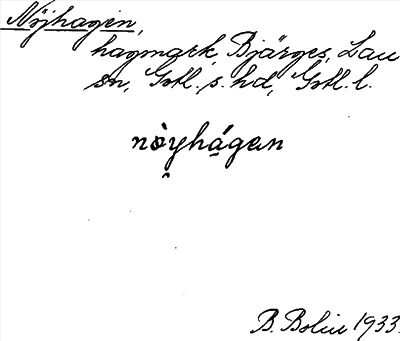 Nöjhagen,
hagmark, Bjärges, Lau
sn, Gotl. s. hd, Gotl. l.
nòyhágan
B. Bolin 1933.